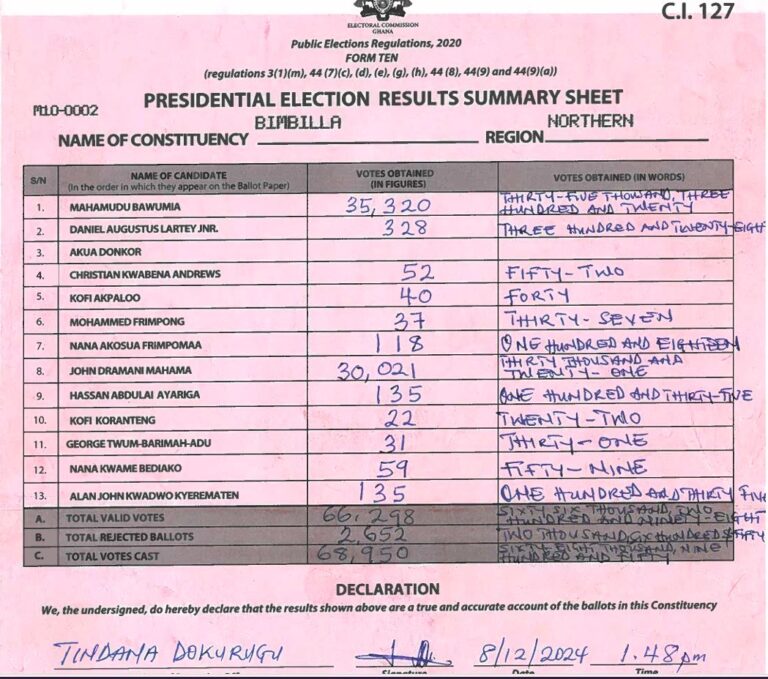 C.I. 127
ELECTORAL COMMISSION
GHANA
Public Elections Regulations, 2020
FORM TEN
(regulations 3(1)(m), 44 (7)(c), (d), (e), (g), (h), 44 (8), 44(9) and 44(9)(a))
M10-0002
PRESIDENTIAL ELECTION RESULTS SUMMARY SHEET
NAME OF CONSTITUENCY BIMBILLA REGION NORTHERN
S/N NAME OF CANDIDATE (In the order in which they appear on the Ballot Paper) VOTES OBTAINED (IN FIGURES) VOTES OBTAINED (IN WORDS)
1. MAHAMUDU BAWUMIA 35,320 THIRTY-FIVE THOUSAND, THREE HUNDRED AND TWENTY
2. DANIEL AUGUSTUS LARTEY JNR. 328 THREE HUNDRED AND TWENTY-EIGH
3. AKUA DONKOR
4. CHRISTIAN KWABENA ANDREWS 52 FIFTY-TWO
5. KOFI AKPALOO 40 FORTY
6. MOHAMMED FRIMPONG 37 THIRTY-SEVEN
7. NANA AKOSUA FRIMPOMAA 118 ONE HUNDRED AND EIGHTEEN
8. JOHN DRAMANI MAHAMA 30,021 THIRTY THOUSAND AND TWENTY-ONE
9. HASSAN ABDULAI AYARIGA 135 ONE HUNDRED AND THIRTY-FIVE
10. KOFI KORANTENG 22 TWENTY-TWO
11. GEORGE TWUM-BARIMAH-ADU 31 THIRTY-ONE
12. NANA KWAME BEDIAKO 59 FIFTY-NINE
13. ALAN JOHN KWADWO KYEREMATEN 135 ONE HUNDRED AND THIRTY FIVE
A. TOTAL VALID VOTES 66,298 SIXTY SIX THOUSAND, TWO HUNDRED AND NINETY-EIGHT
B. TOTAL REJECTED BALLOTS 2,652 TWO THOUSAND, SIX HUNDRED & FIFTY
C. TOTAL VOTES CAST 68,950 SIXTY EIGHT THOUSAND, NINE HUNDRED AND FIFTY
DECLARATION
We, the undersigned, do hereby declare that the results shown above are a true and accurate account of the ballots in this Constituency
TINDANA DOKURUGU 8/12/2024 1.48pm
Signature Date Time